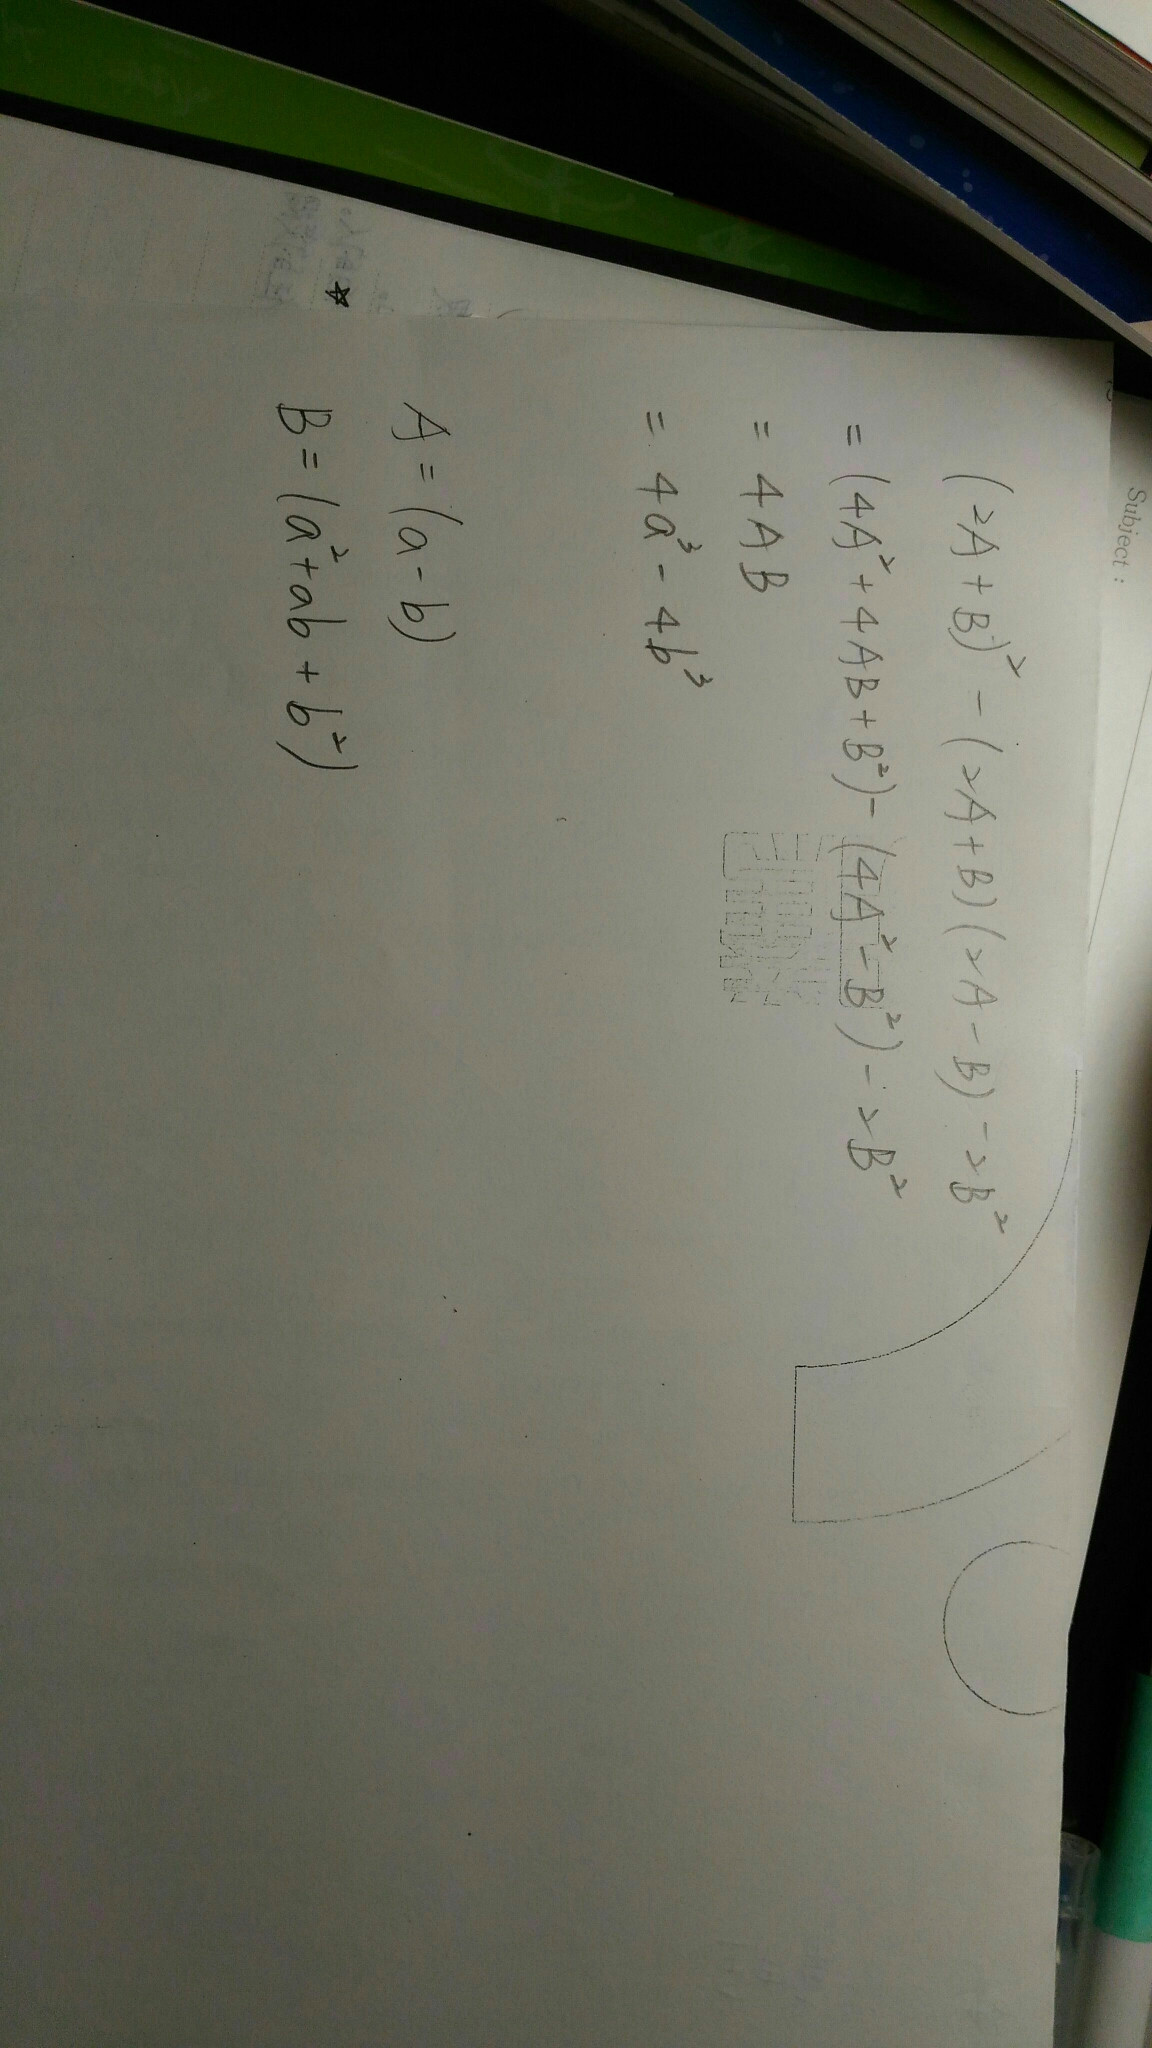 Subject :
(2A+B)² - (2A+B)(2A-B) - 2B²
= (4A²+4AB+B²) - (4A²-B²) - 2B²
= 4AB
= 4a³ - 4b³
A = (a-b)
B = (a²+ab+b²)